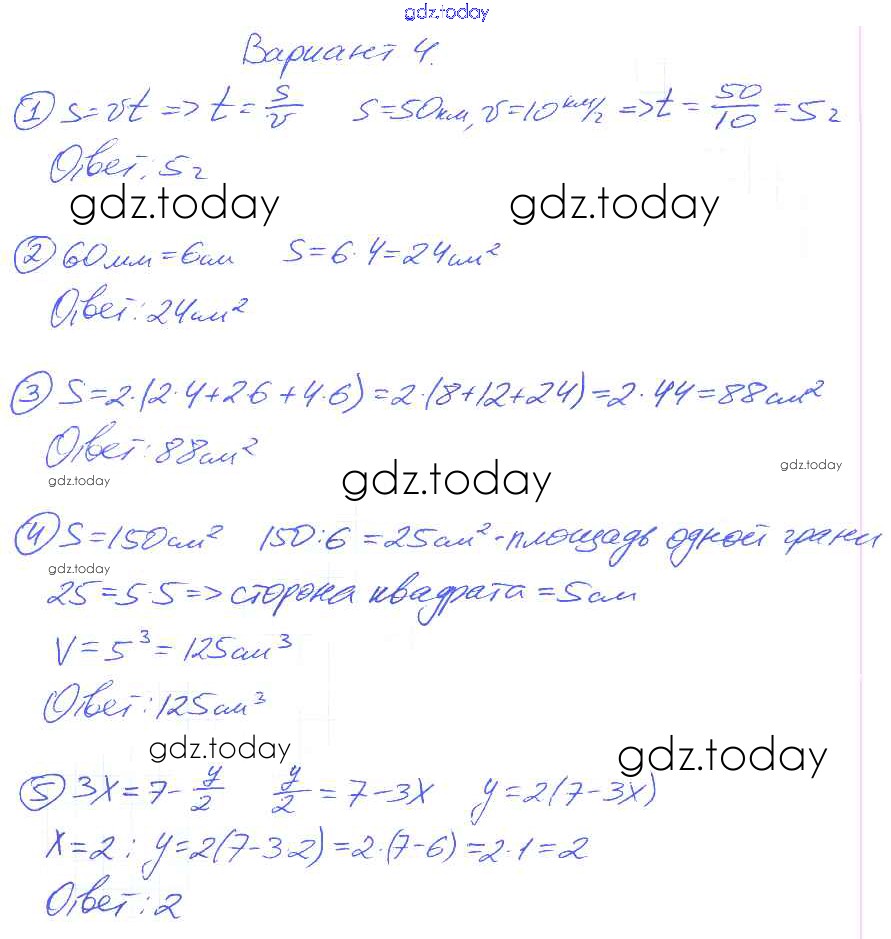 gdz.today
Вариант 4.
① S=vt => t = s/v    S=50км, v=10км/г => t = 50/10 = 5г
Ответ: 5г
gdz.today    gdz.today
② 60мм=6см    S=6·4=24см²
Ответ: 24см²
③ S=2·(2·4+2·6+4·6)=2·(8+12+24)=2·44=88см²
Ответ: 88см²
gdz.today    gdz.today    gdz.today
④ S=150см²    150:6=25см²-площадь одной грани
gdz.today
25=5·5=> сторона квадрата=5см
V=5³=125см³
Ответ: 125см³
gdz.today    gdz.today
⑤ 3x=7-y/2    y/2=7-3x    y=2(7-3x)
x=2: y=2(7-3·2)=2·(7-6)=2·1=2
Ответ: 2